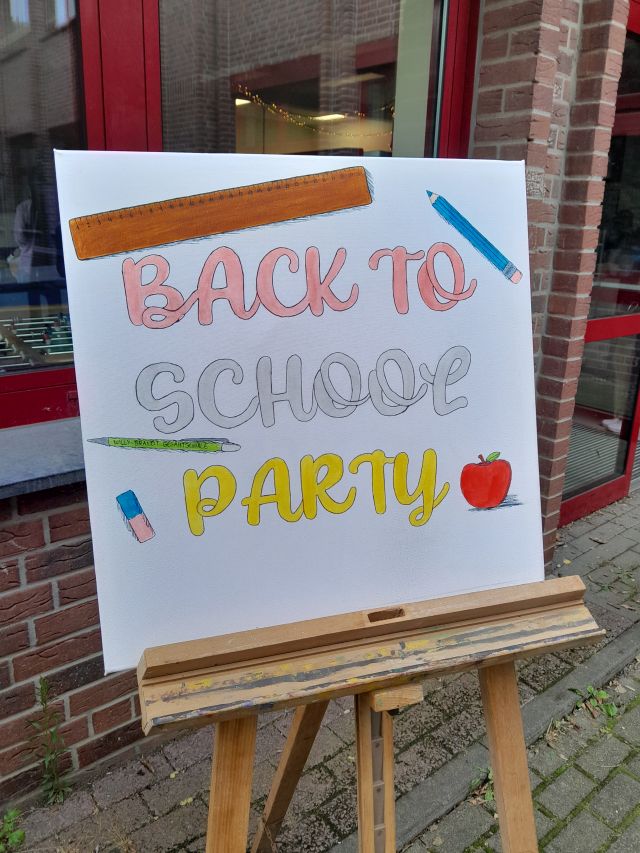 BACK TO
SCHOOL
WILLY-BRANDT GESAMTSCHULE
PARTY